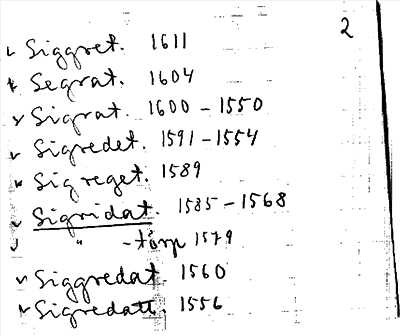 2
Siggret. 1611
Segrat. 1604
Sigrat. 1600 - 1550
Sigredet. 1591 - 1554
Sigreget. 1589
Sigridat. 1585 - 1568
" -torp 1579
Siggredat. 1560
Sigredatt. 1556